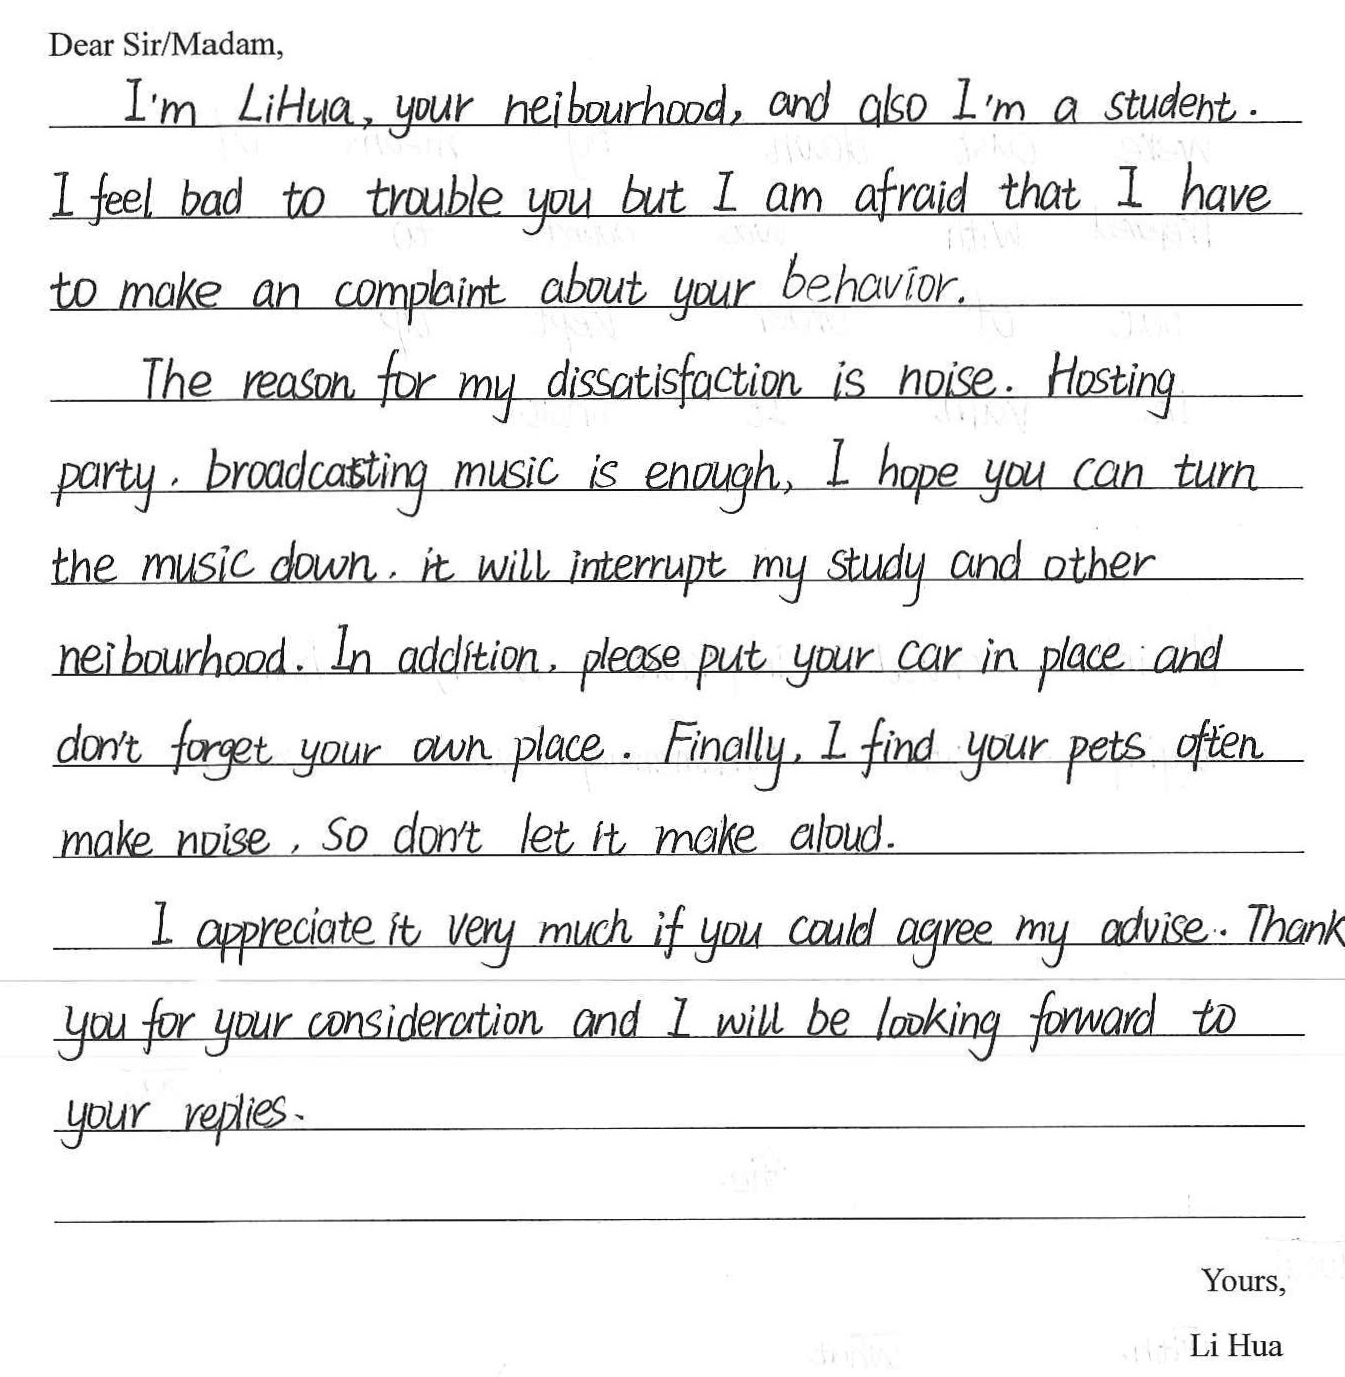 Dear Sir/Madam,
I'm LiHua, your neibourhood, and also I'm a student.
I feel bad to trouble you but I am afraid that I have
to make an complaint about your behavior.
The reason for my dissatisfaction is noise. Hosting
party, broadcasting music is enough, I hope you can turn
the music down, it will interrupt my study and other
neibourhood. In addition, please put your car in place and
don't forget your own place. Finally, I find your pets often
make noise, so don't let it make aloud.
I appreciate it very much if you could agree my advise. Thank
you for your consideration and I will be looking forward to
your replies.
Yours,
Li Hua